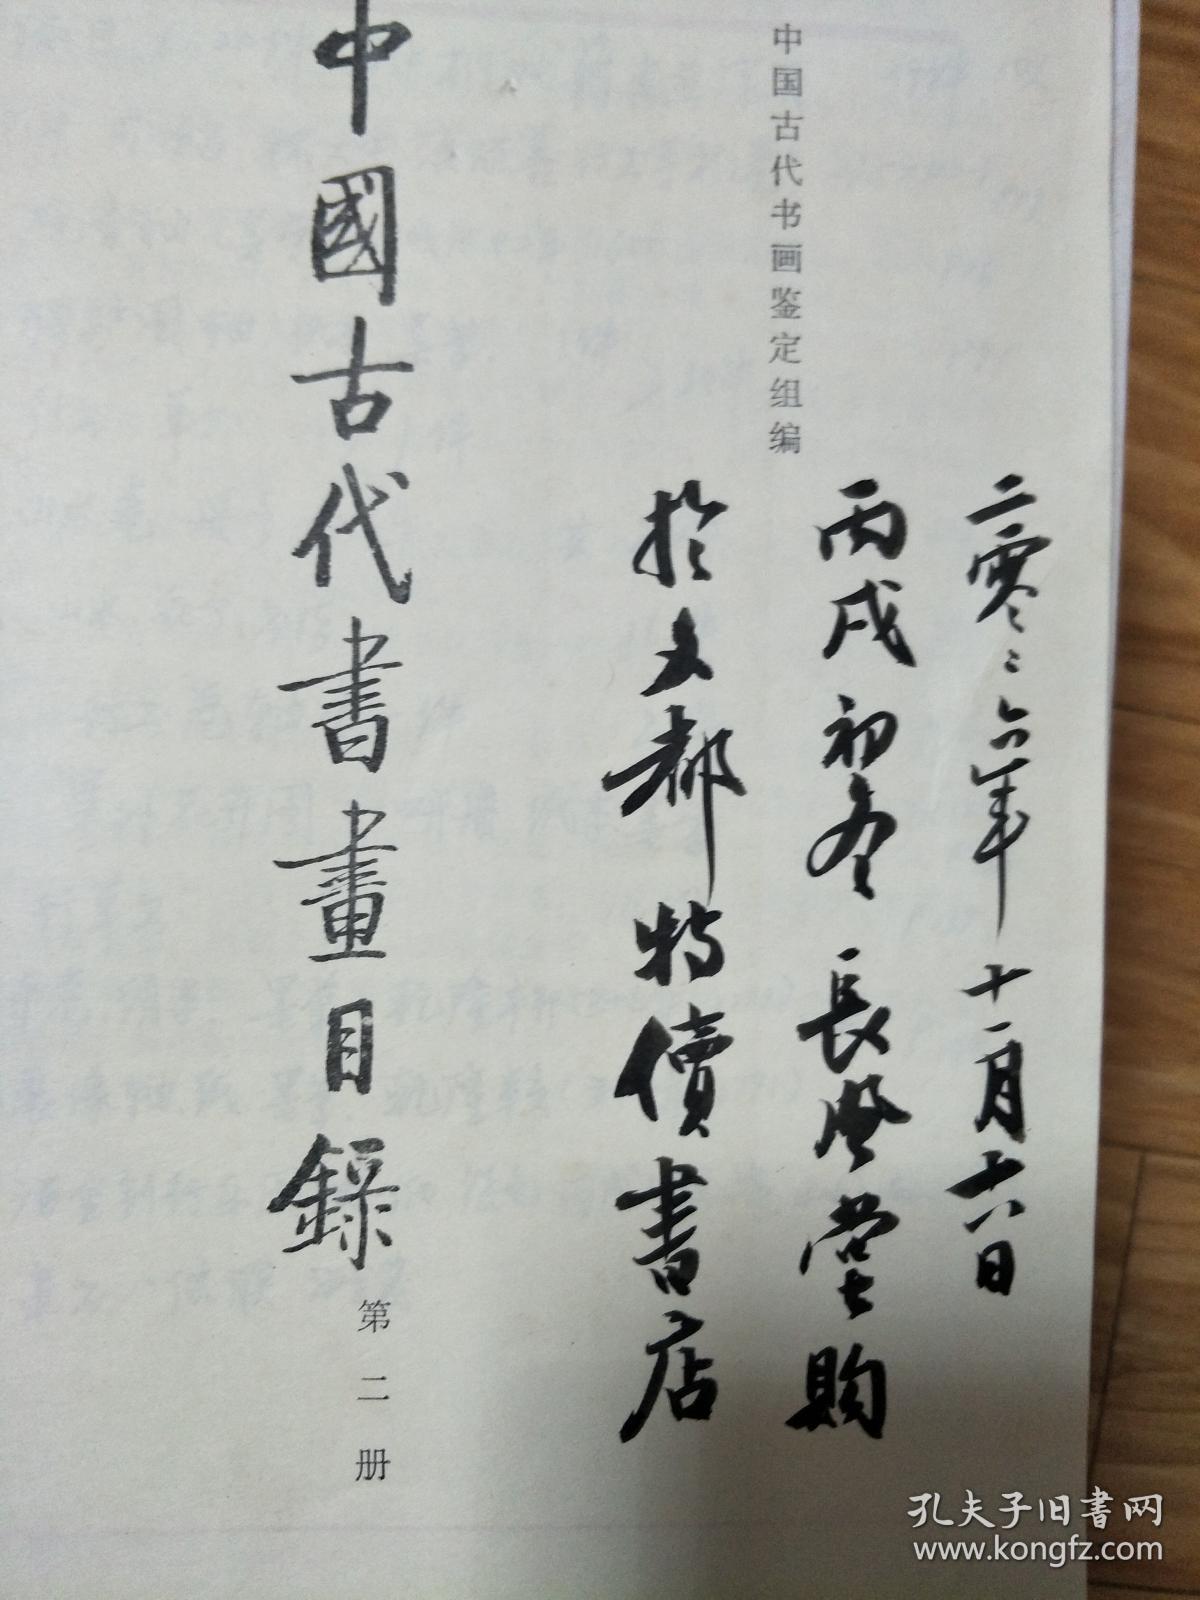 二零零六年十一月十六日
丙戌初冬長風堂購
於文都特價書店
中国古代书画鉴定组编
中國古代書畫目錄
第二册
孔夫子旧书网
www.kongfz.com